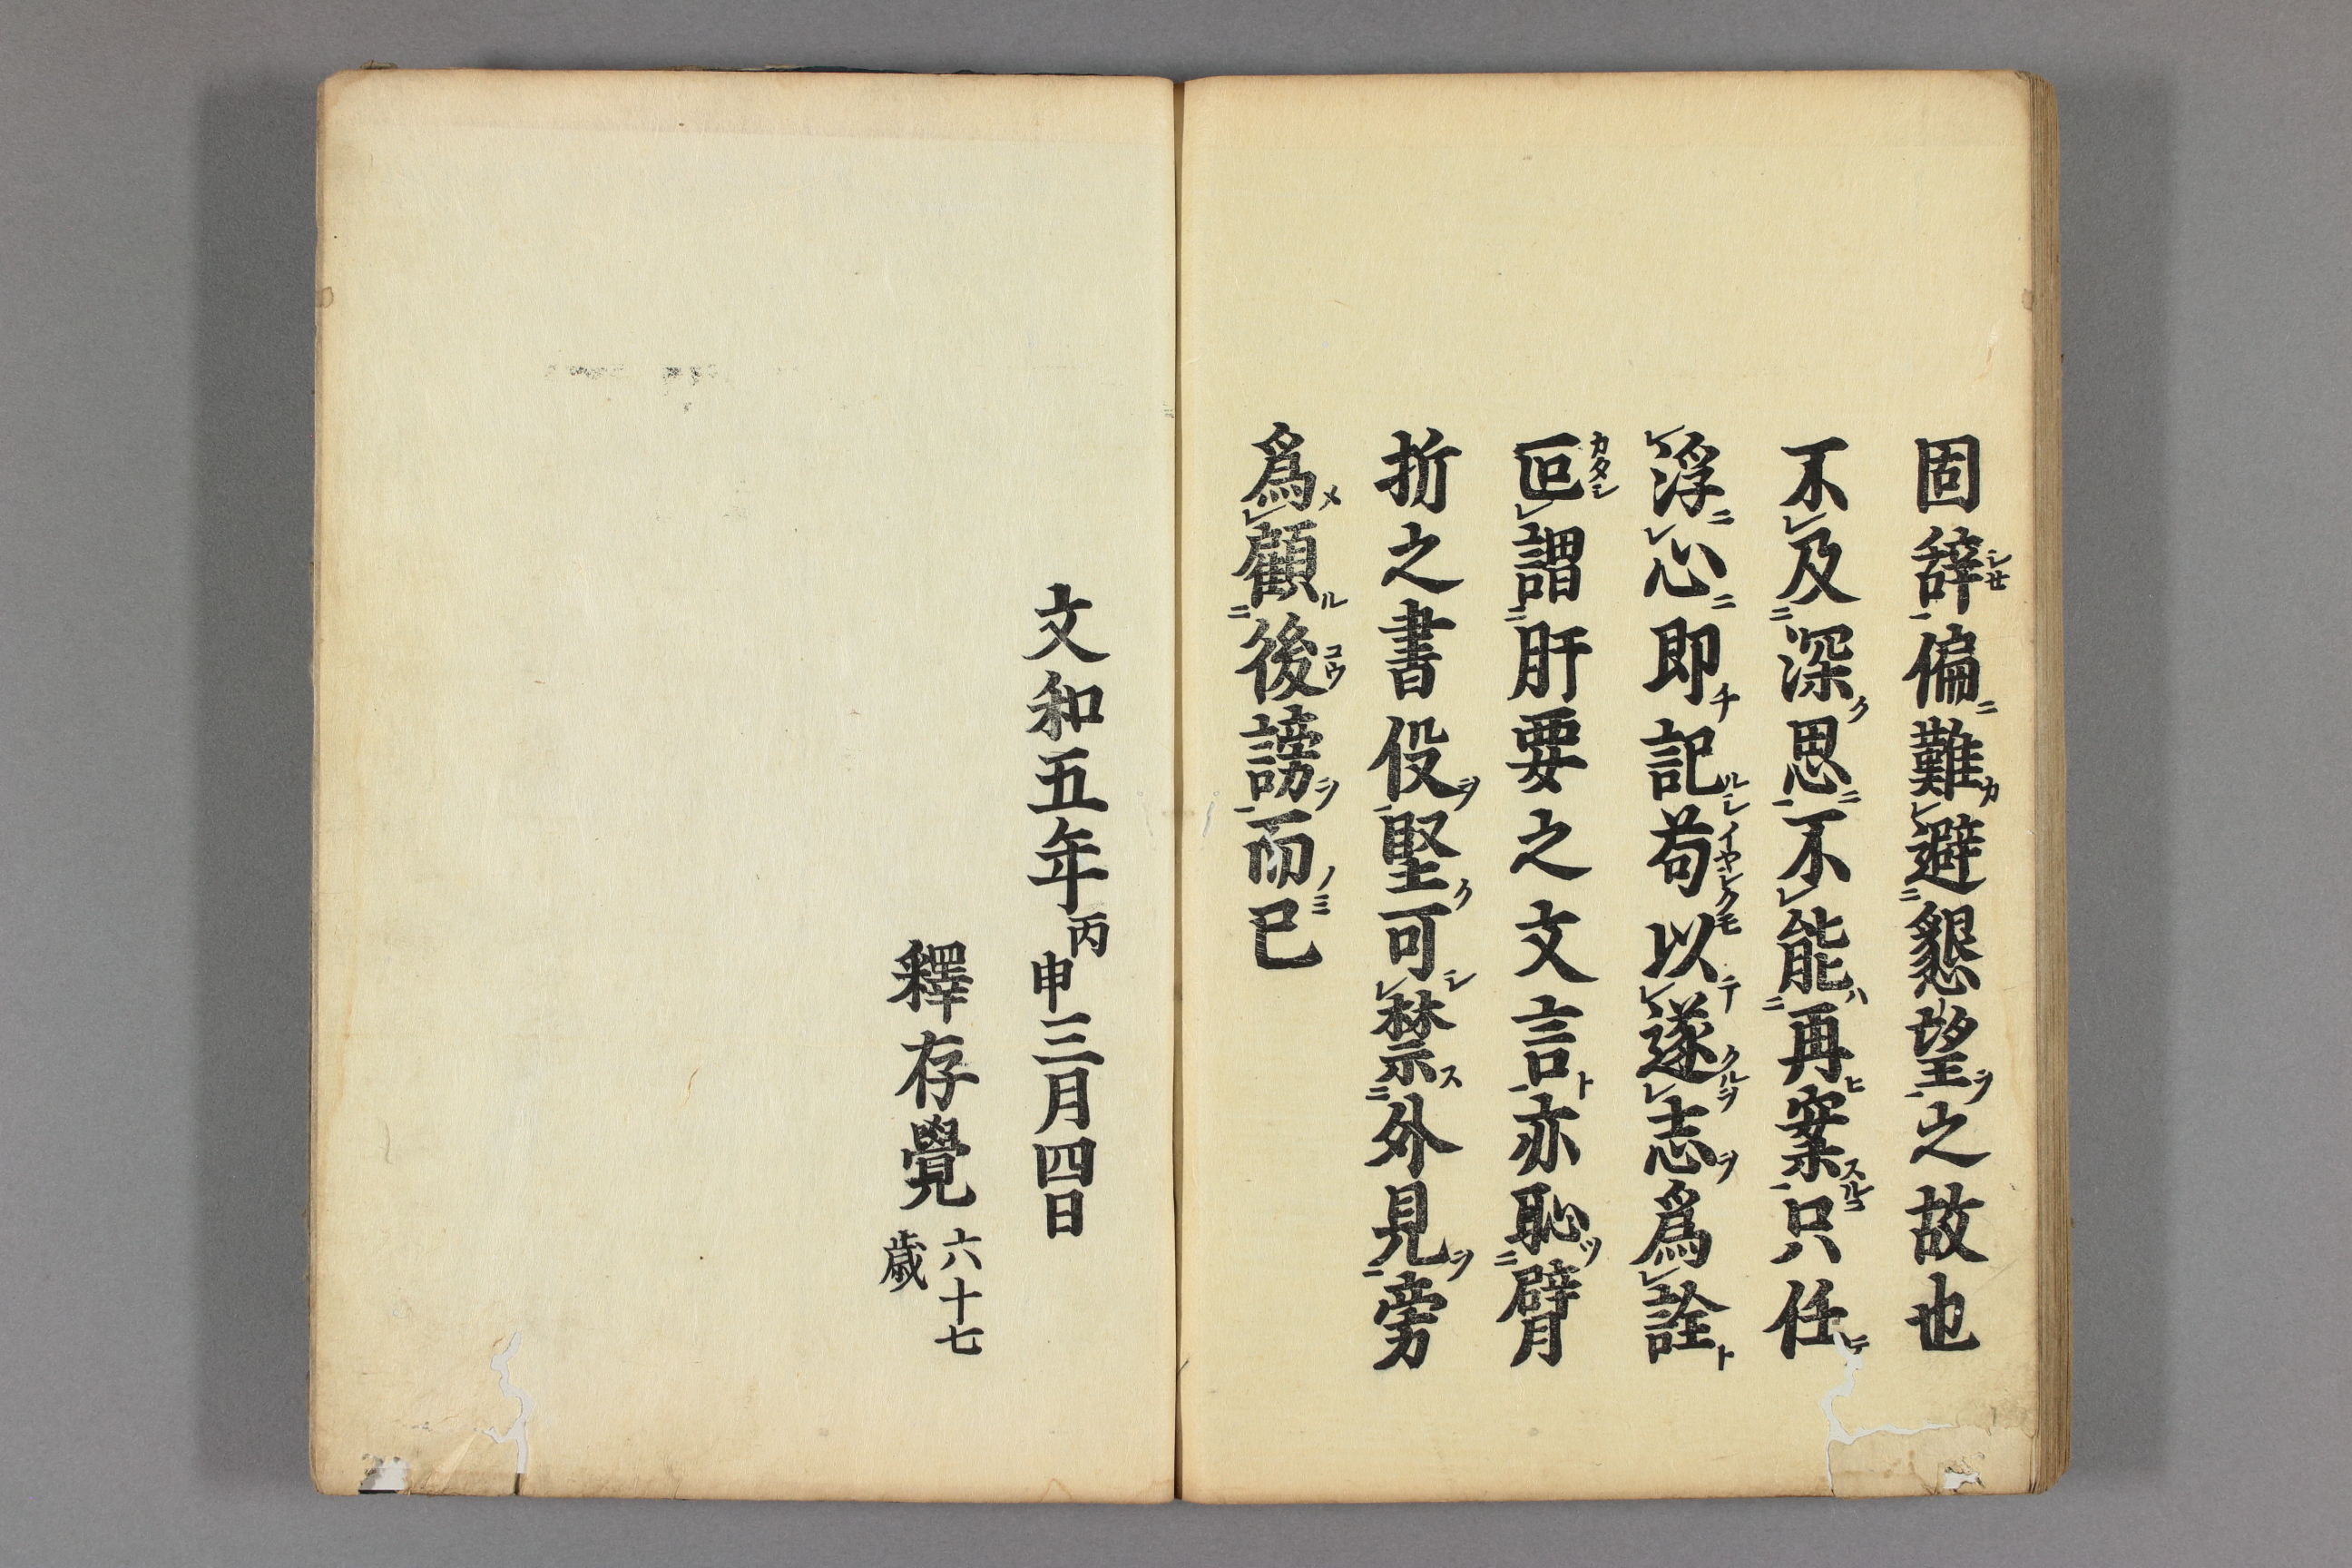 固辞偏難避懇望之故也
不及深思不能再案只任
浮心即記苟以遂志爲詮
叵謂肝要之文言亦恥臂
折之書役堅可禁外見旁
爲顧後謗而已
文和五年丙申三月四日
釋存覺六十七歳